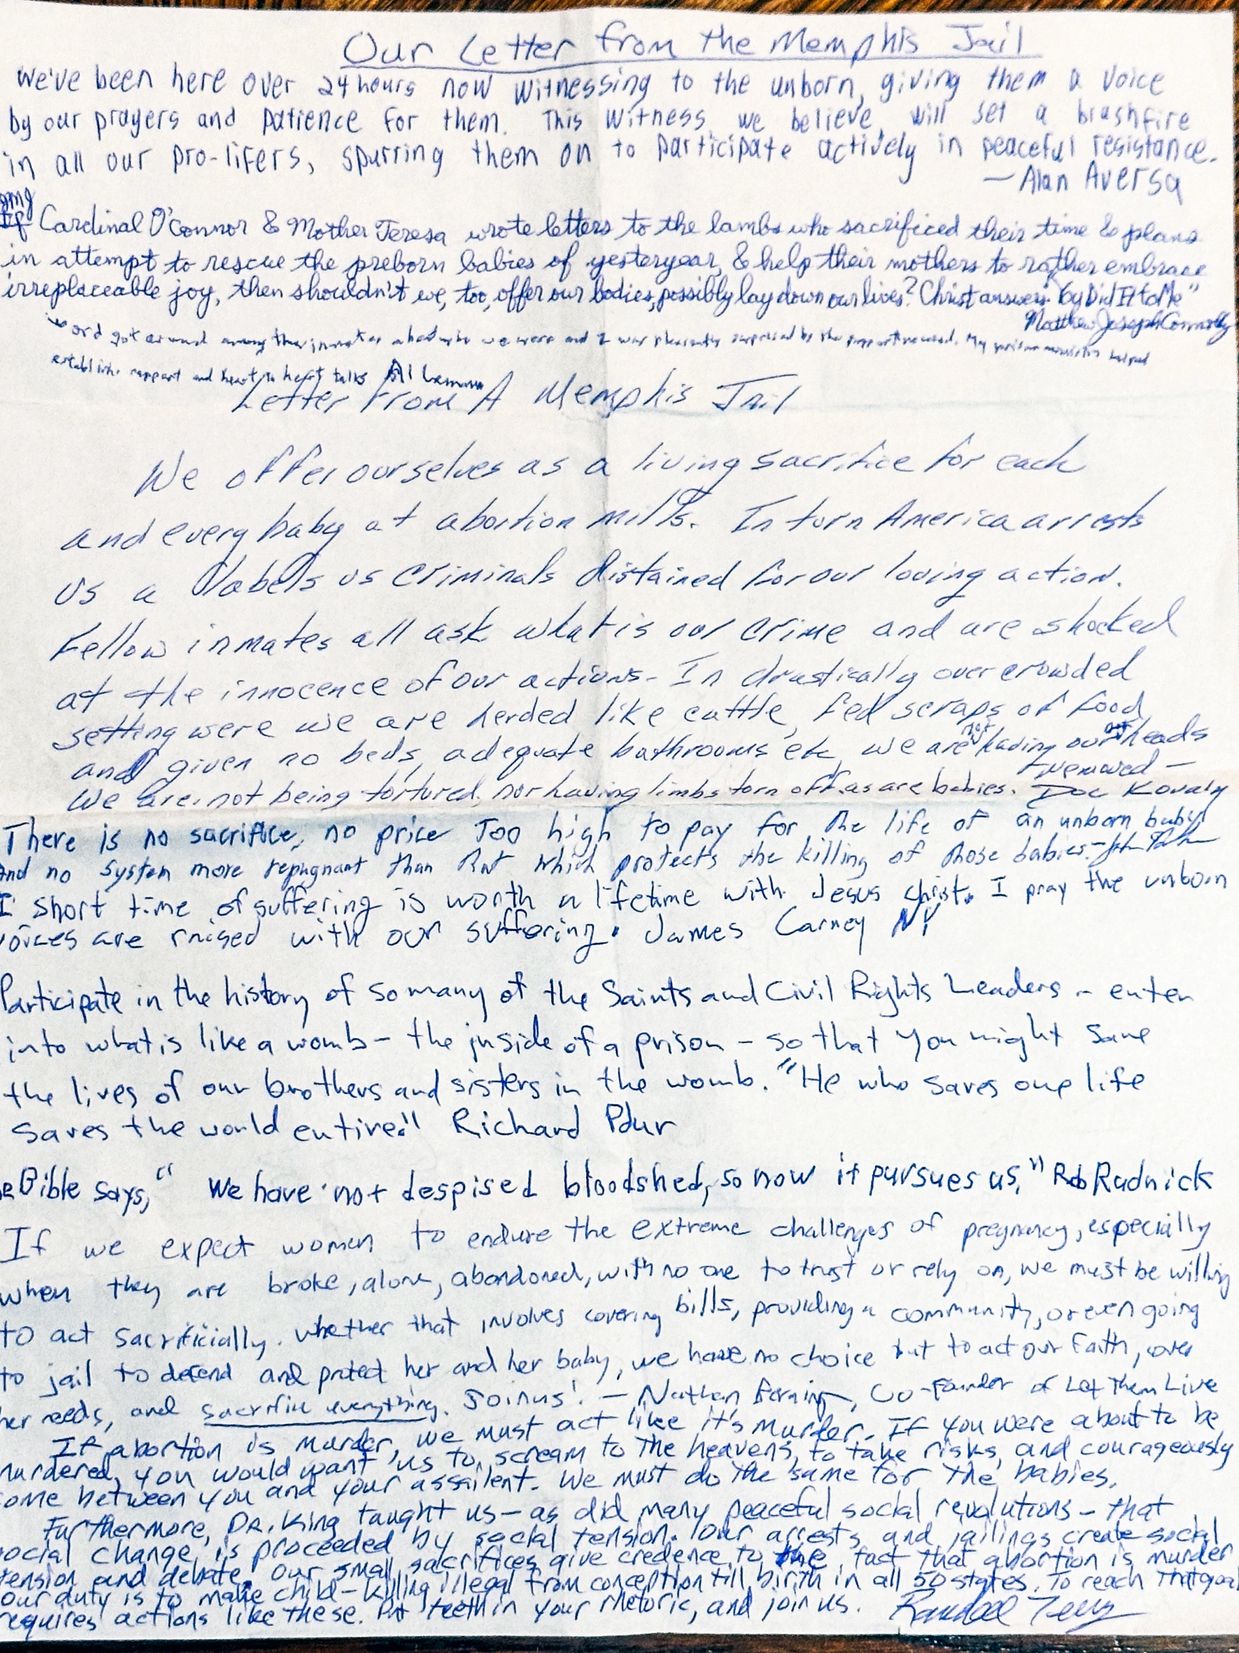 Our Letter from the Memphis Jail
We've been here over 24 hours now witnessing to the unborn, giving them a voice
by our prayers and patience for them. This witness we believe will set a brushfire
in all our pro-lifers, spurring them on to participate actively in peaceful resistance.
— Alan Aversa
If Cardinal O'Connor & Mother Teresa wrote letters to the lambs who sacrificed their time & plans
in attempt to rescue the preborn babies of yesteryear, & help their mothers to rather embrace
irreplaceable joy, then shouldn't we, too, offer our bodies, possibly lay down our lives? Christ answers "You Did It to Me"
Matthew Joseph Connolly
Word got around among the inmates about who we were and I was pleasantly surprised by the support received. My prison ministries helped
establish rapport and heart to heart talks Al
Letter From A Memphis Jail
We offer ourselves as a living sacrifice for each
and every baby at abortion mills. In turn America arrests
us a labels us criminals distained for our loving action.
Fellow inmates all ask what is our crime and are shocked
at the innocence of our actions - In drastically overcrowded
setting were we are herded like cattle, fed scraps of food
and given no beds, adequate bathrooms etc, we are not having our heads
removed -
We are not being tortured, nor having limbs torn off as are babies. Doc Kovaly
There is no sacrifice, no price Too high to pay for the life of an unborn baby
And no system more repugnant than that which protects the killing of those babies. -
A short time of suffering is worth a lifetime with Jesus Christ. I pray the unborn
voices are raised with our suffering. James Carney NY
Participate in the history of so many of the Saints and Civil Rights Leaders - enter
into what is like a womb - the inside of a prison - so that you might save
the lives of our brothers and sisters in the womb. "He who saves one life
saves the world entire!" Richard
Bible says, "We have not despised bloodshed, so now it pursues us," Rob Rudnick
If we expect women to endure the extreme challenges of pregnancy, especially
when they are broke, alone, abandoned, with no one to trust or rely on, we must be willing
to act sacrificially. Whether that involves covering bills, providing a community, or even going
to jail to defend and protect her and her baby, we have no choice but to act our faith, cover
her needs, and sacrifice everything. Join us! — Nathan Berning, Co-founder of Let Them Live
If abortion is murder, we must act like it's murder. If you were about to be
murdered, you would want us to scream to the heavens, to take risks, and courageously
come between you and your assailent. We must do the same for the babies.
Furthermore, Dr. King taught us - as did many peaceful social revolutions - that
social change is proceeded by social tension. Our arrests and jailings create social
tension and debate. Our small sacrifices give credence to the fact that abortion is murder
our duty is to make child-killing illegal from conception till birth in all 50 states. To reach that goal
requires actions like these. Put teeth in your rhetoric, and join us. Randall Terry